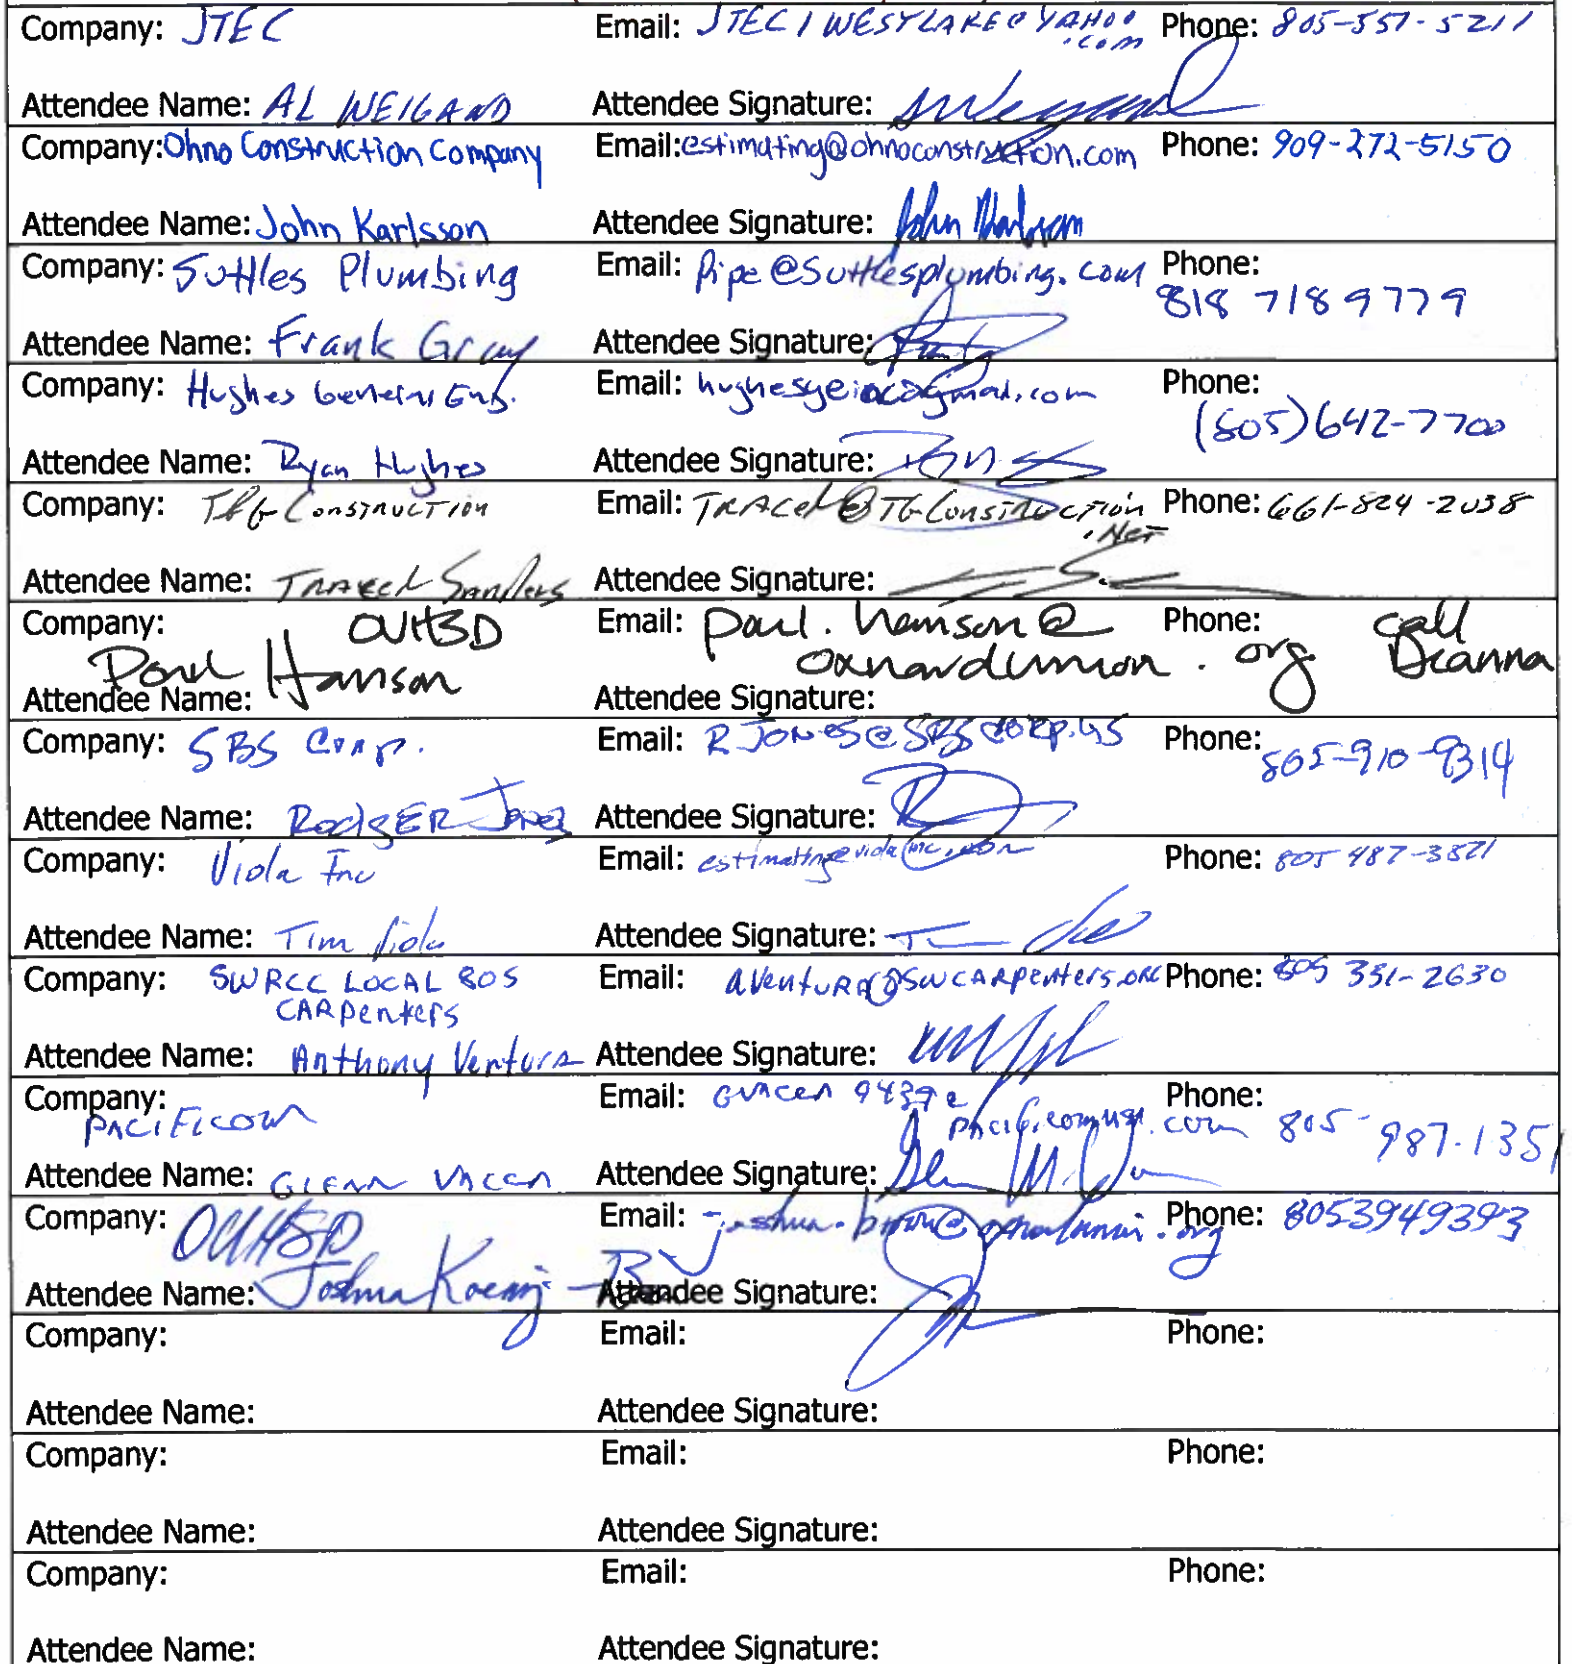 Company: JTEC Email: JTEC1WESTLAKE@YAHOO.com Phone: 805-551-5211
Attendee Name: AL WEIGAND Attendee Signature:
Company: Ohno Construction Company Email: estimating@ohnoconstruction.com Phone: 909-272-5150
Attendee Name: John Karlsson Attendee Signature: John Karlsson
Company: Suttles Plumbing Email: Pipe@Suttlesplumbing.com Phone: 818 718 9779
Attendee Name: Frank Gray Attendee Signature:
Company: Hughes General Eng. Email: hughesgeinc@gmail.com Phone: (805) 642-7700
Attendee Name: Ryan Hughes Attendee Signature:
Company: Construction Email: Phone: 661-824-2038
Attendee Name: Sanders Attendee Signature:
Company: OUHSD Email: paul.hanson@ Phone: call
Paul Hanson oxnardunion.org Deanna
Attendee Name: Attendee Signature:
Company: SBS Corp. Email: RJONES@SBSCORP.US Phone: 805-910-9314
Attendee Name: Rodger Jones Attendee Signature:
Company: Viola Inc Email: estimating@violainc.com Phone: 805 487-3871
Attendee Name: Tim Viola Attendee Signature:
Company: SWRCC LOCAL 805 Email: aventura@SWCARpenters.org Phone: 805 331-2630
CARpenters
Attendee Name: Anthony Ventura Attendee Signature:
Company: Email: Phone:
PACIFICOM 805-987-1351
Attendee Name: GLENN VACCA Attendee Signature:
Company: OUHSD Email: Phone: 8053949393
Attendee Name: Joshua Koenig Attendee Signature:
Company: Email: Phone:
Attendee Name: Attendee Signature:
Company: Email: Phone:
Attendee Name: Attendee Signature:
Company: Email: Phone:
Attendee Name: Attendee Signature: